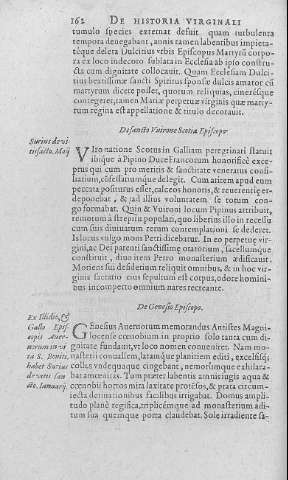 162 DE HISTORIA VIRGINALI
tumulo species externat desuit quam turbulenta
tempora denegabant, annis tamen labentibus impieta-
teque deleta Dulcitius urbis Episcopus Martyrũ corpora
ex loco indecoro sublata in Ecclesia ab ipso constru-
cta cum dignitate collocauit. Quam Ecclesiam Dulci-
tius beatissimæ sancti Spiritus sponsæ dulcis amator cũ
martyrum dicere posset, quorum reliquias, cineresque
contegeret, tamen Mariæ perpetuæ virginis quæ marty-
rum regina est appellatione & titulo decorauit.
De sancto Vuirone Scotiæ Episcopo.
Surius de vi
tis sancto. Maij
VIro natione Scotus in Galliam peregrinari statuit
ibique a Pipino Duce Francorum honorifice exce-
ptus qui cum pro meritis & sanctitate veneratus consi-
liarium, cõfessariumque delegit. Cum autem apud eum
peccata positurus esset, calceos honoris, & reuerentiæ er-
go deponebat, & ad illius voluntatem se totum con-
formabat. Quin & Vuironi locum Pipinus attribuit,
remotum à strepitu populari, quo liberius illo se confer-
ret cum suis diuinarum rerum contemplationi se dederet.
Is locus vulgo mons Petri dicebatur. In eo perpetuæ virgi-
ni, ac Dei parenti sanctissimæ oratorium, sacellumque
construit, diuo item Petro monasterium ædificauit.
Moriens sui desiderium reliquit omnibus, & in hoc vir-
ginis sacrato eius sepultum est corpus, odore homini-
bus incomperto omnium nares recreante.
De Genesio Episcopo.
Ex Illidio, &
Gallo Epis-
copis Auer-
norum in vi
ta S. Boniti,
habet Surius
de vitis san
cto. Ianuarij.
GEnesius Auernorum memorandus Antistes Magni-
locense cœnobium in proprio solo tanta cum di-
gnitate fundauit, vt loco nomen conueniret. Nam mo-
nasterii conuallem, latamque planitiem editi, excelsiq́;
colles vndequaque cingebant, nemorumque exhilara-
bat amœnitas. Tum præter labentis amnis fugia aqua &
cœnobii hortos mira laxitate protẽsos, & prata circum-
iecta deriuationibus facilibus irrigabat. Domus ampli-
tudo planè regifica, triplicemque ad monasterium adi-
tum sua quemque porta claudebat. Sole irradiante fa-